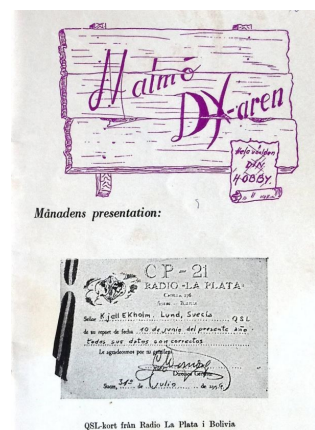 Malmö
DX-aren
Hela världen
DIN
HOBBY
Månadens presentation:
CP - 21
RADIO "LA PLATA"
Sucre - Bolivia
Señor Kjell Ekholm. Lund, Suecia QSL
de su report de fecha 10 de junio del presente año
todos sus datos son correctos
Le agradecemos por su gentileza
Director Gerente
Sucre, 31º de julio de 195
QSL-kort från Radio La Plata i Bolivia